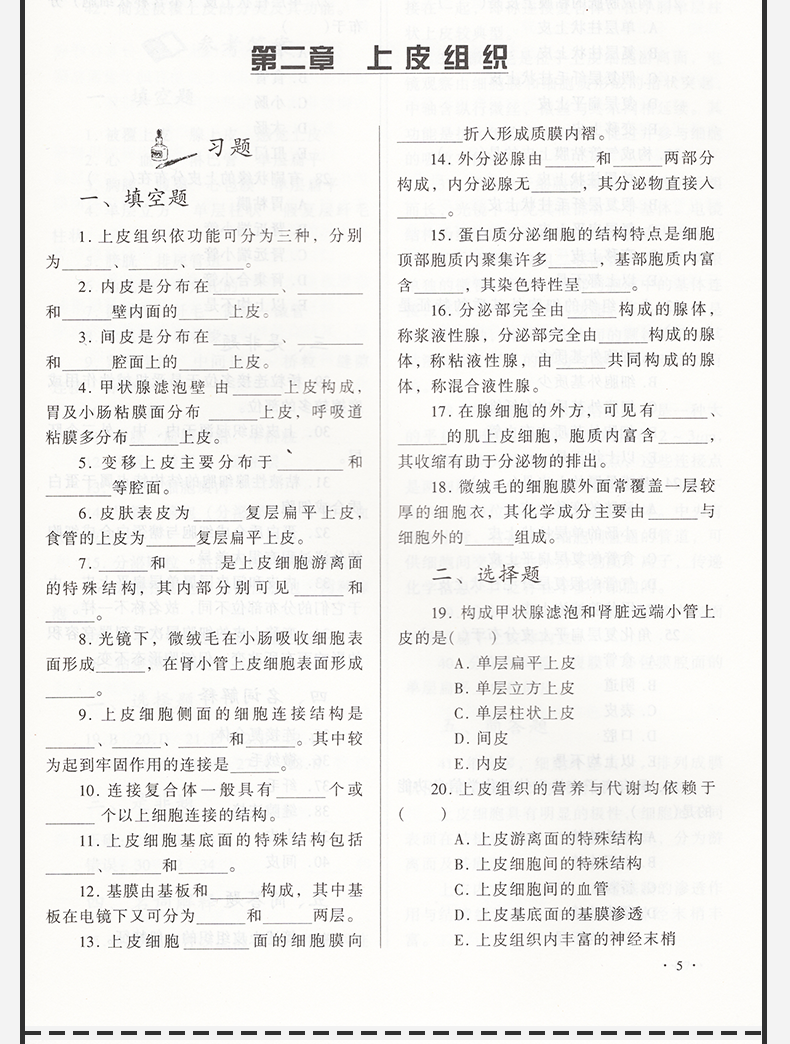 第二章 上皮组织
习题
一、填空题
1. 上皮组织依功能可分为三种，分别
为______、______、______。
2. 内皮是分布在________、________
和______壁内面的______上皮。
3. 间皮是分布在________、________
和______腔面上的______上皮。
4. 甲状腺滤泡壁 由______上皮构成，
胃及小肠粘膜面分布______上皮，呼吸道
粘膜多分布______上皮。
5. 变移上皮主要分布于________和
________等腔面。
6. 皮肤表皮为______复层扁平上皮，
食管的上皮为______复层扁平上皮。
7. ______和______是上皮细胞游离面
的特殊结构，其内部分别可见______和
______。
8. 光镜下，微绒毛在小肠吸收细胞表
面形成______，在肾小管上皮细胞表面形成
______。
9. 上皮细胞侧面的细胞连接结构是
______、______、______和______。其中较
为起到牢固作用的连接是______。
10. 连接复合体一般具有______个或
______个以上细胞连接的结构。
11. 上皮细胞基底面的特殊结构包括
______、______和______。
12. 基膜由基板和______构成，其中基
板在电镜下又可分为______和______两层。
13. 上皮细胞________面的细胞膜向
________折入形成质膜内褶。
14. 外分泌腺由______和______两部分
构成，内分泌腺无______，其分泌物直接入
______。
15. 蛋白质分泌细胞的结构特点是细胞
顶部胞质内聚集许多______，基部胞质内富
含________，其染色特性呈______。
16. 分泌部完全由______构成的腺体，
称浆液性腺，分泌部完全由______构成的腺
体，称粘液性腺，由______共同构成的腺
体，称混合液性腺。
17. 在腺细胞的外方，可见有______、
______的肌上皮细胞，胞质内富含______，
其收缩有助于分泌物的排出。
18. 微绒毛的细胞膜外面常覆盖一层较
厚的细胞衣，其化学成分主要由______与
细胞外的______组成。
二、选择题
19. 构成甲状腺滤泡和肾脏远端小管上
皮的是( )
A. 单层扁平上皮
B. 单层立方上皮
C. 单层柱状上皮
D. 间皮
E. 内皮
20. 上皮组织的营养与代谢均依赖于
( )
A. 上皮游离面的特殊结构
B. 上皮细胞间的特殊结构
C. 上皮细胞间的血管
D. 上皮基底面的基膜渗透
E. 上皮组织内丰富的神经末梢
· 5 ·